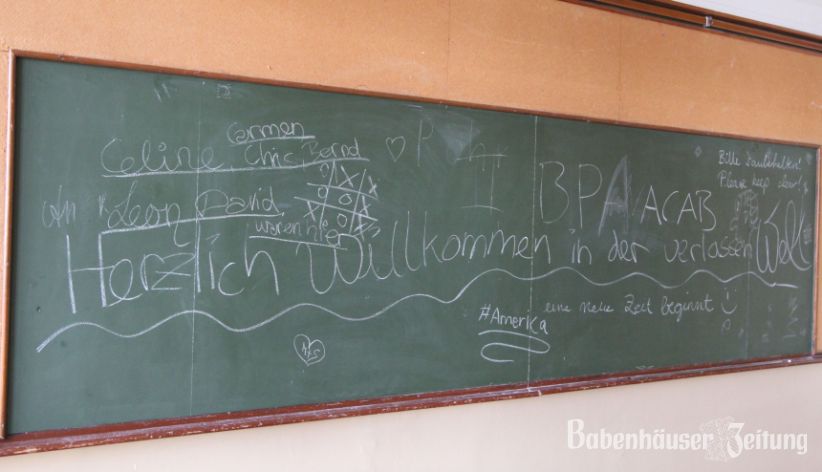 Carmen
Celine Chris Bernd
Leon David
waren hier
BPA ACAB
Bitte Sauberhalten!
Please keep clean!
Herzlich Willkommen in der verlassen Welt
#Amerika
eine neue Zeit beginnt :)
Babenhäuser Zeitung